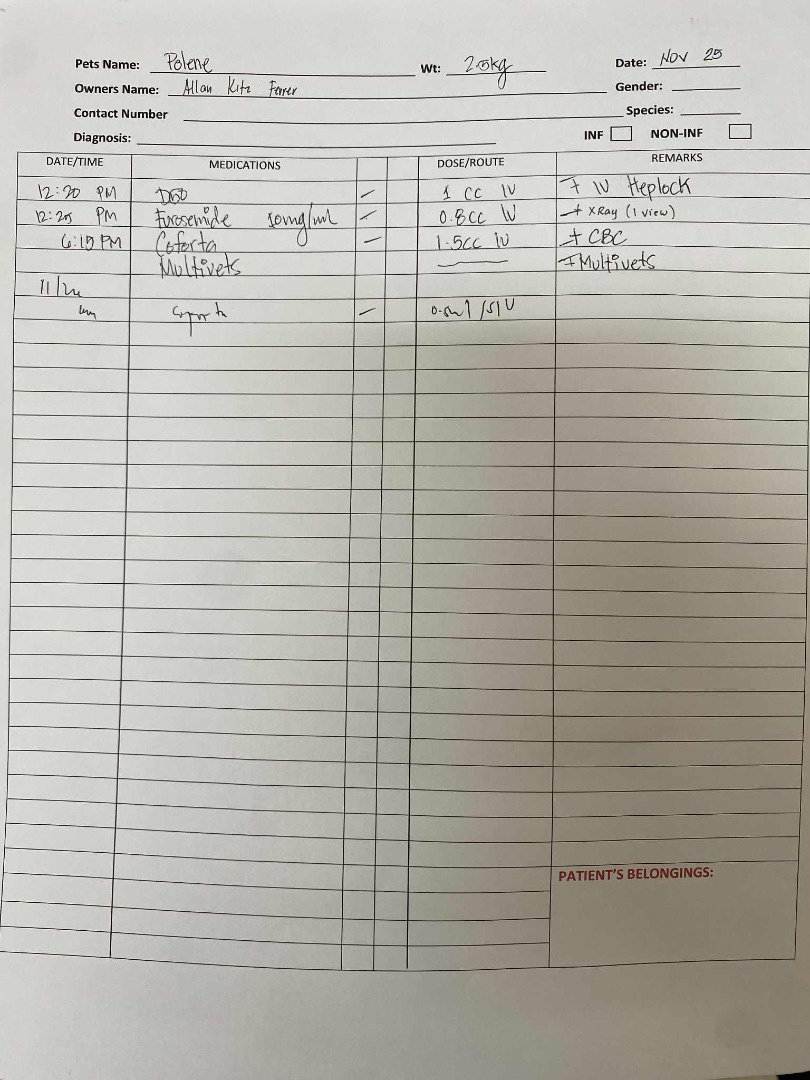 Pets Name: Polene Wt: 2.5kg Date: Nov 25
Owners Name: Allan Kitz Ferrer Gender:
Contact Number Species:
Diagnosis: INF NON-INF
DATE/TIME MEDICATIONS DOSE/ROUTE REMARKS
12:20 PM D50 1 cc IV + IV Heplock
12:25 PM Furosemide 10mg/ml 0.8cc IV + XRay (1 view)
6:15 PM Coforta 1.5cc IV + CBC
Multivets + Multivets
11/26
PATIENT'S BELONGINGS: